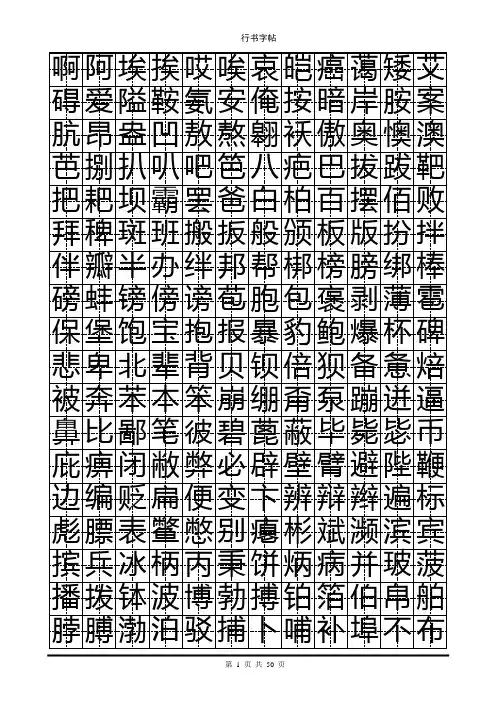 行书字帖
啊阿埃挨哎唉哀皑癌蔼矮艾
碍爱隘鞍氨安俺按暗岸胺案
肮昂盎凹敖熬翱袄傲奥懊澳
芭捌扒叭吧笆八疤巴拔跋靶
把耙坝霸罢爸白柏百摆佰败
拜稗斑班搬扳般颁板版扮拌
伴瓣半办绊邦帮梆榜膀绑棒
磅蚌镑傍谤苞胞包褒剥薄雹
保堡饱宝抱报暴豹鲍爆杯碑
悲卑北辈背贝钡倍狈备惫焙
被奔苯本笨崩绷甭泵蹦迸逼
鼻比鄙笔彼碧蓖蔽毕毙毖币
庇痹闭敝弊必辟壁臂避陛鞭
边编贬扁便变卞辨辩辫遍标
彪膘表鳖憋别瘪彬斌濒滨宾
摈兵冰柄丙秉饼炳病并玻菠
播拨钵波博勃搏铂箔伯帛舶
脖膊渤泊驳捕卜哺补埠不布
第 1 页 共 50 页